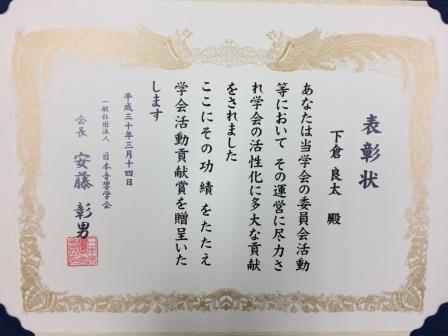 表彰状
下倉良太 殿
あなたは当学会の委員会活動
等においてその運営に尽力さ
れ学会の活性化に多大な貢献
をされました
ここにその功績をたたえ
学会活動貢献賞を贈呈いた
します
平成三十年三月十四日
一般社団法人 日本音響学会
会長 安藤彰男